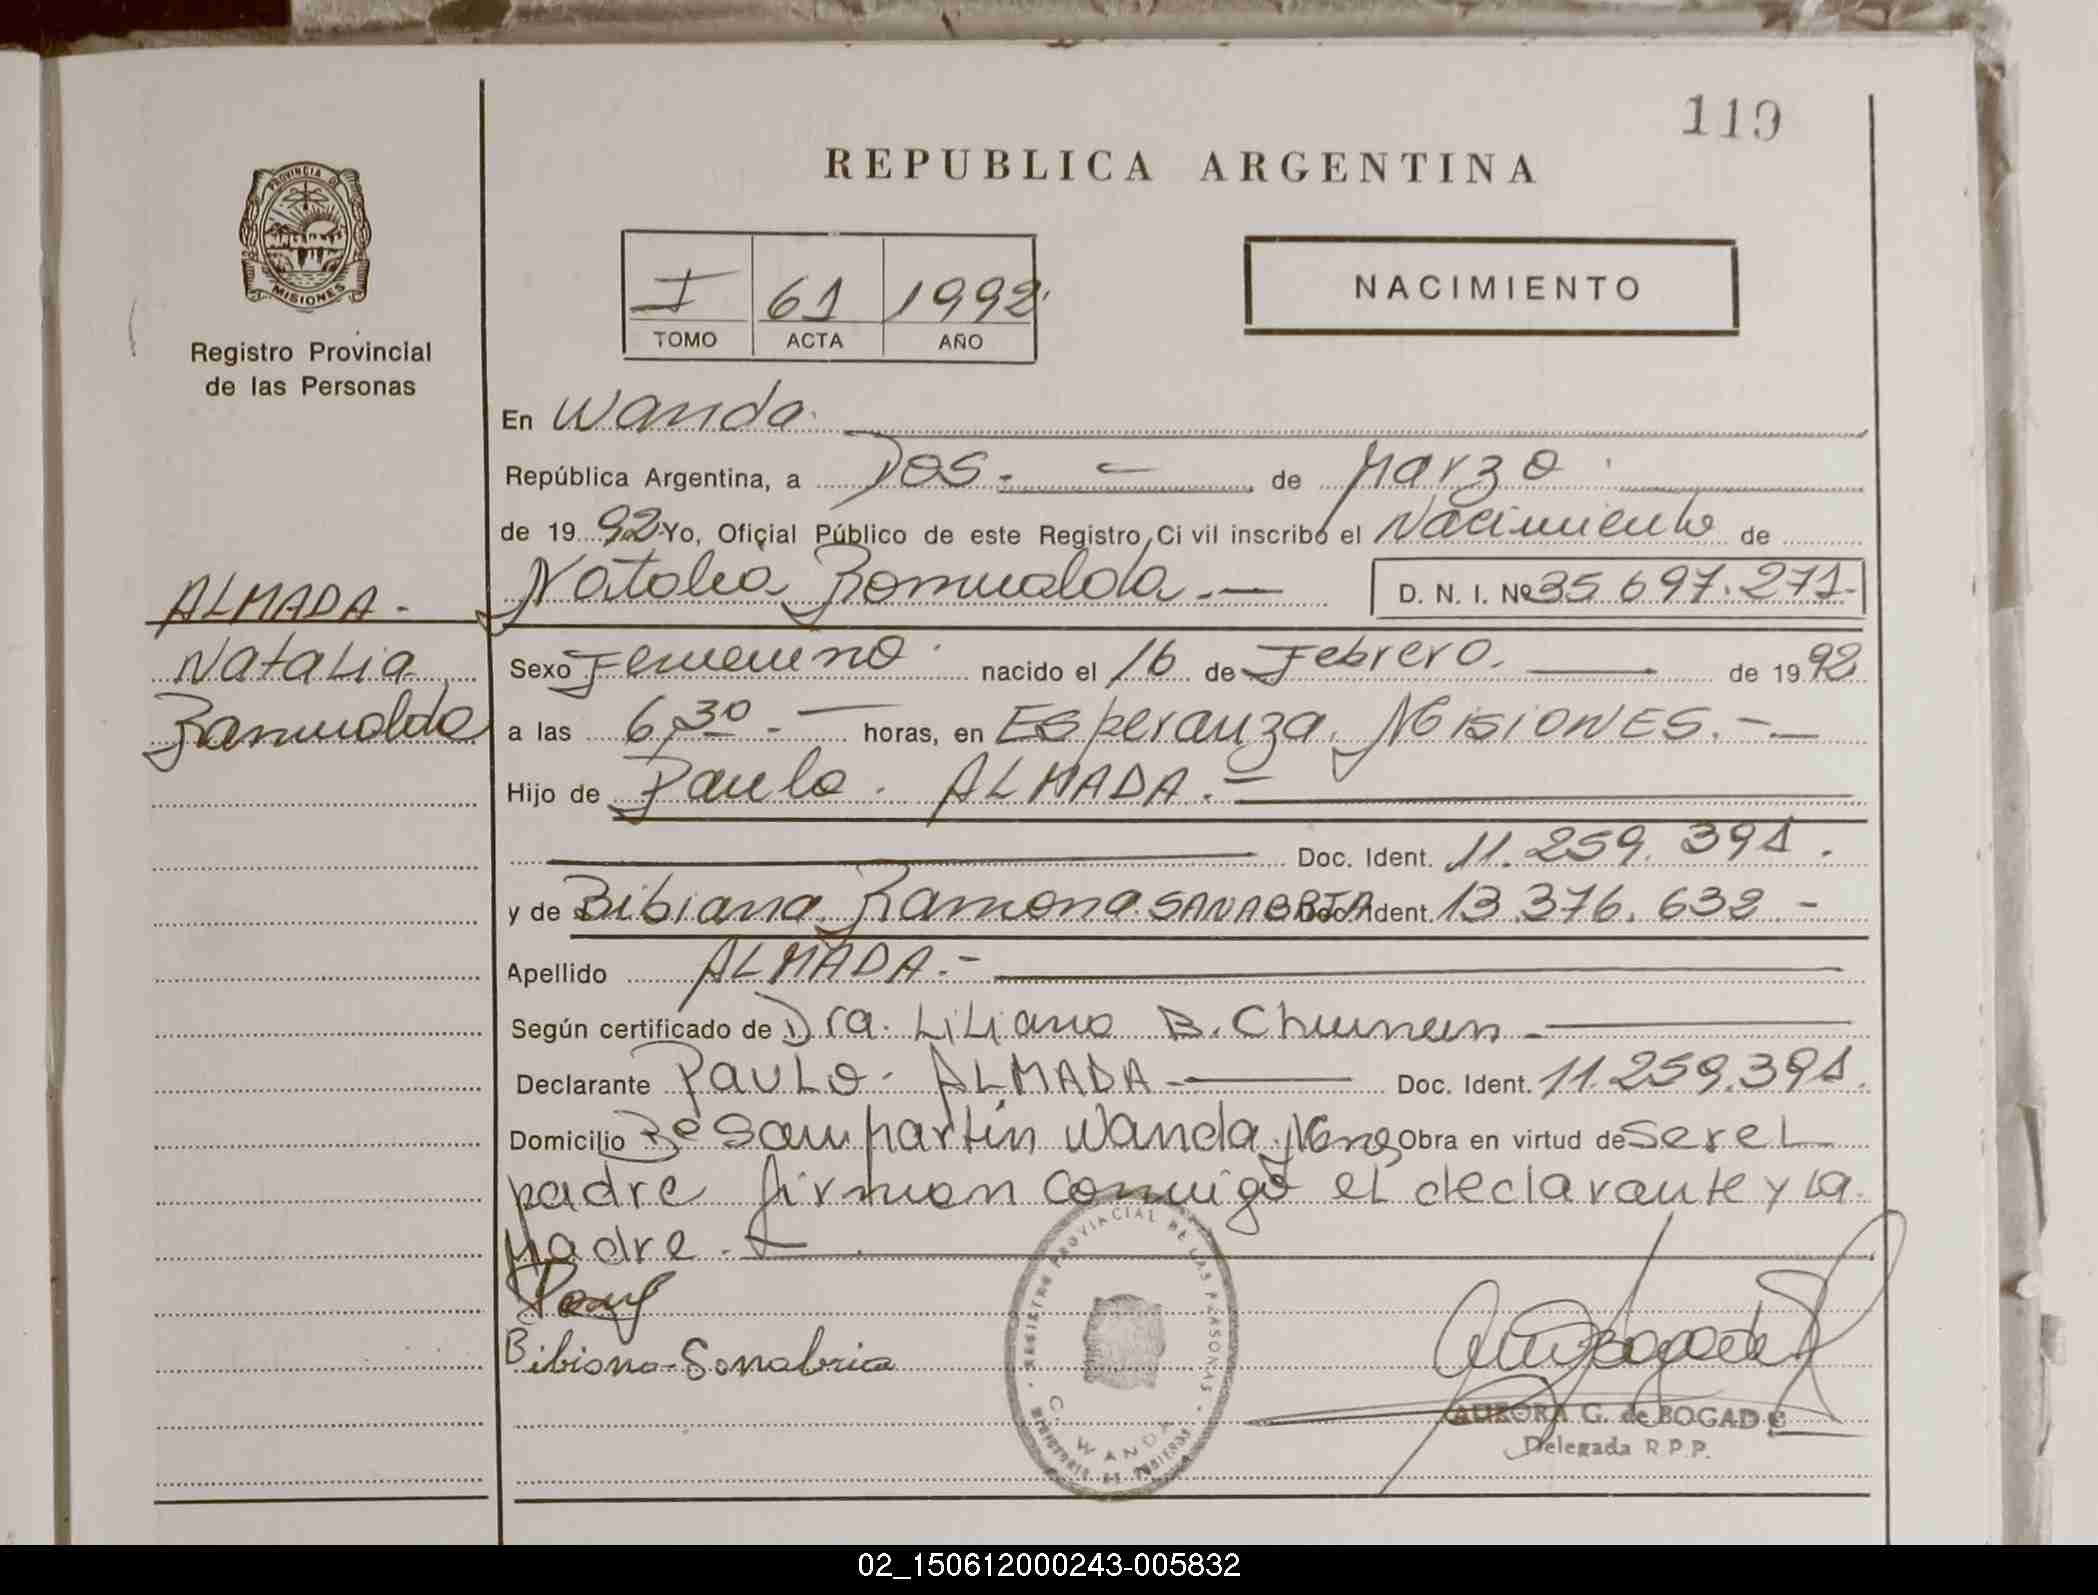 119
REPUBLICA ARGENTINA
PROVINCIA DE
MISIONES
Registro Provincial
de las Personas
I 61 1992
TOMO ACTA AÑO
NACIMIENTO
En Wanda
República Argentina, a Dos.- de Marzo
de 19 92 Yo, Oficial Público de este Registro Civil inscribo el Nacimiento de
ALMADA.-
Natalia Romualda.- D. N. I. Nº 35 697.271-
Natalia
Romualda
Sexo Femenino nacido el 16 de Febrero. de 19 92
a las 6,30 - horas, en Esperanza. MISIONES.-
Hijo de Paulo. ALMADA.-
Doc. Ident. 11.259.391.
y de Bibiana Ramona SANABRIA Doc. Ident. 13 376.632 -
Apellido ALMADA.-
Según certificado de Dra. Liliana B.
Declarante PAULO. ALMADA- Doc. Ident. 11.259.391.
Domicilio Bº San martín Wanda Mnes Obra en virtud de Ser el
padre firman conmigo el declarante y la
Madre.-
Bibiana Sanabria
REGISTRO PROVINCIAL DE LAS PERSONAS
MINISTERIO DE GOBIERNO
WANDA
AURORA G. de BOGADO
Delegada R.P.P.
02_150612000243-005832